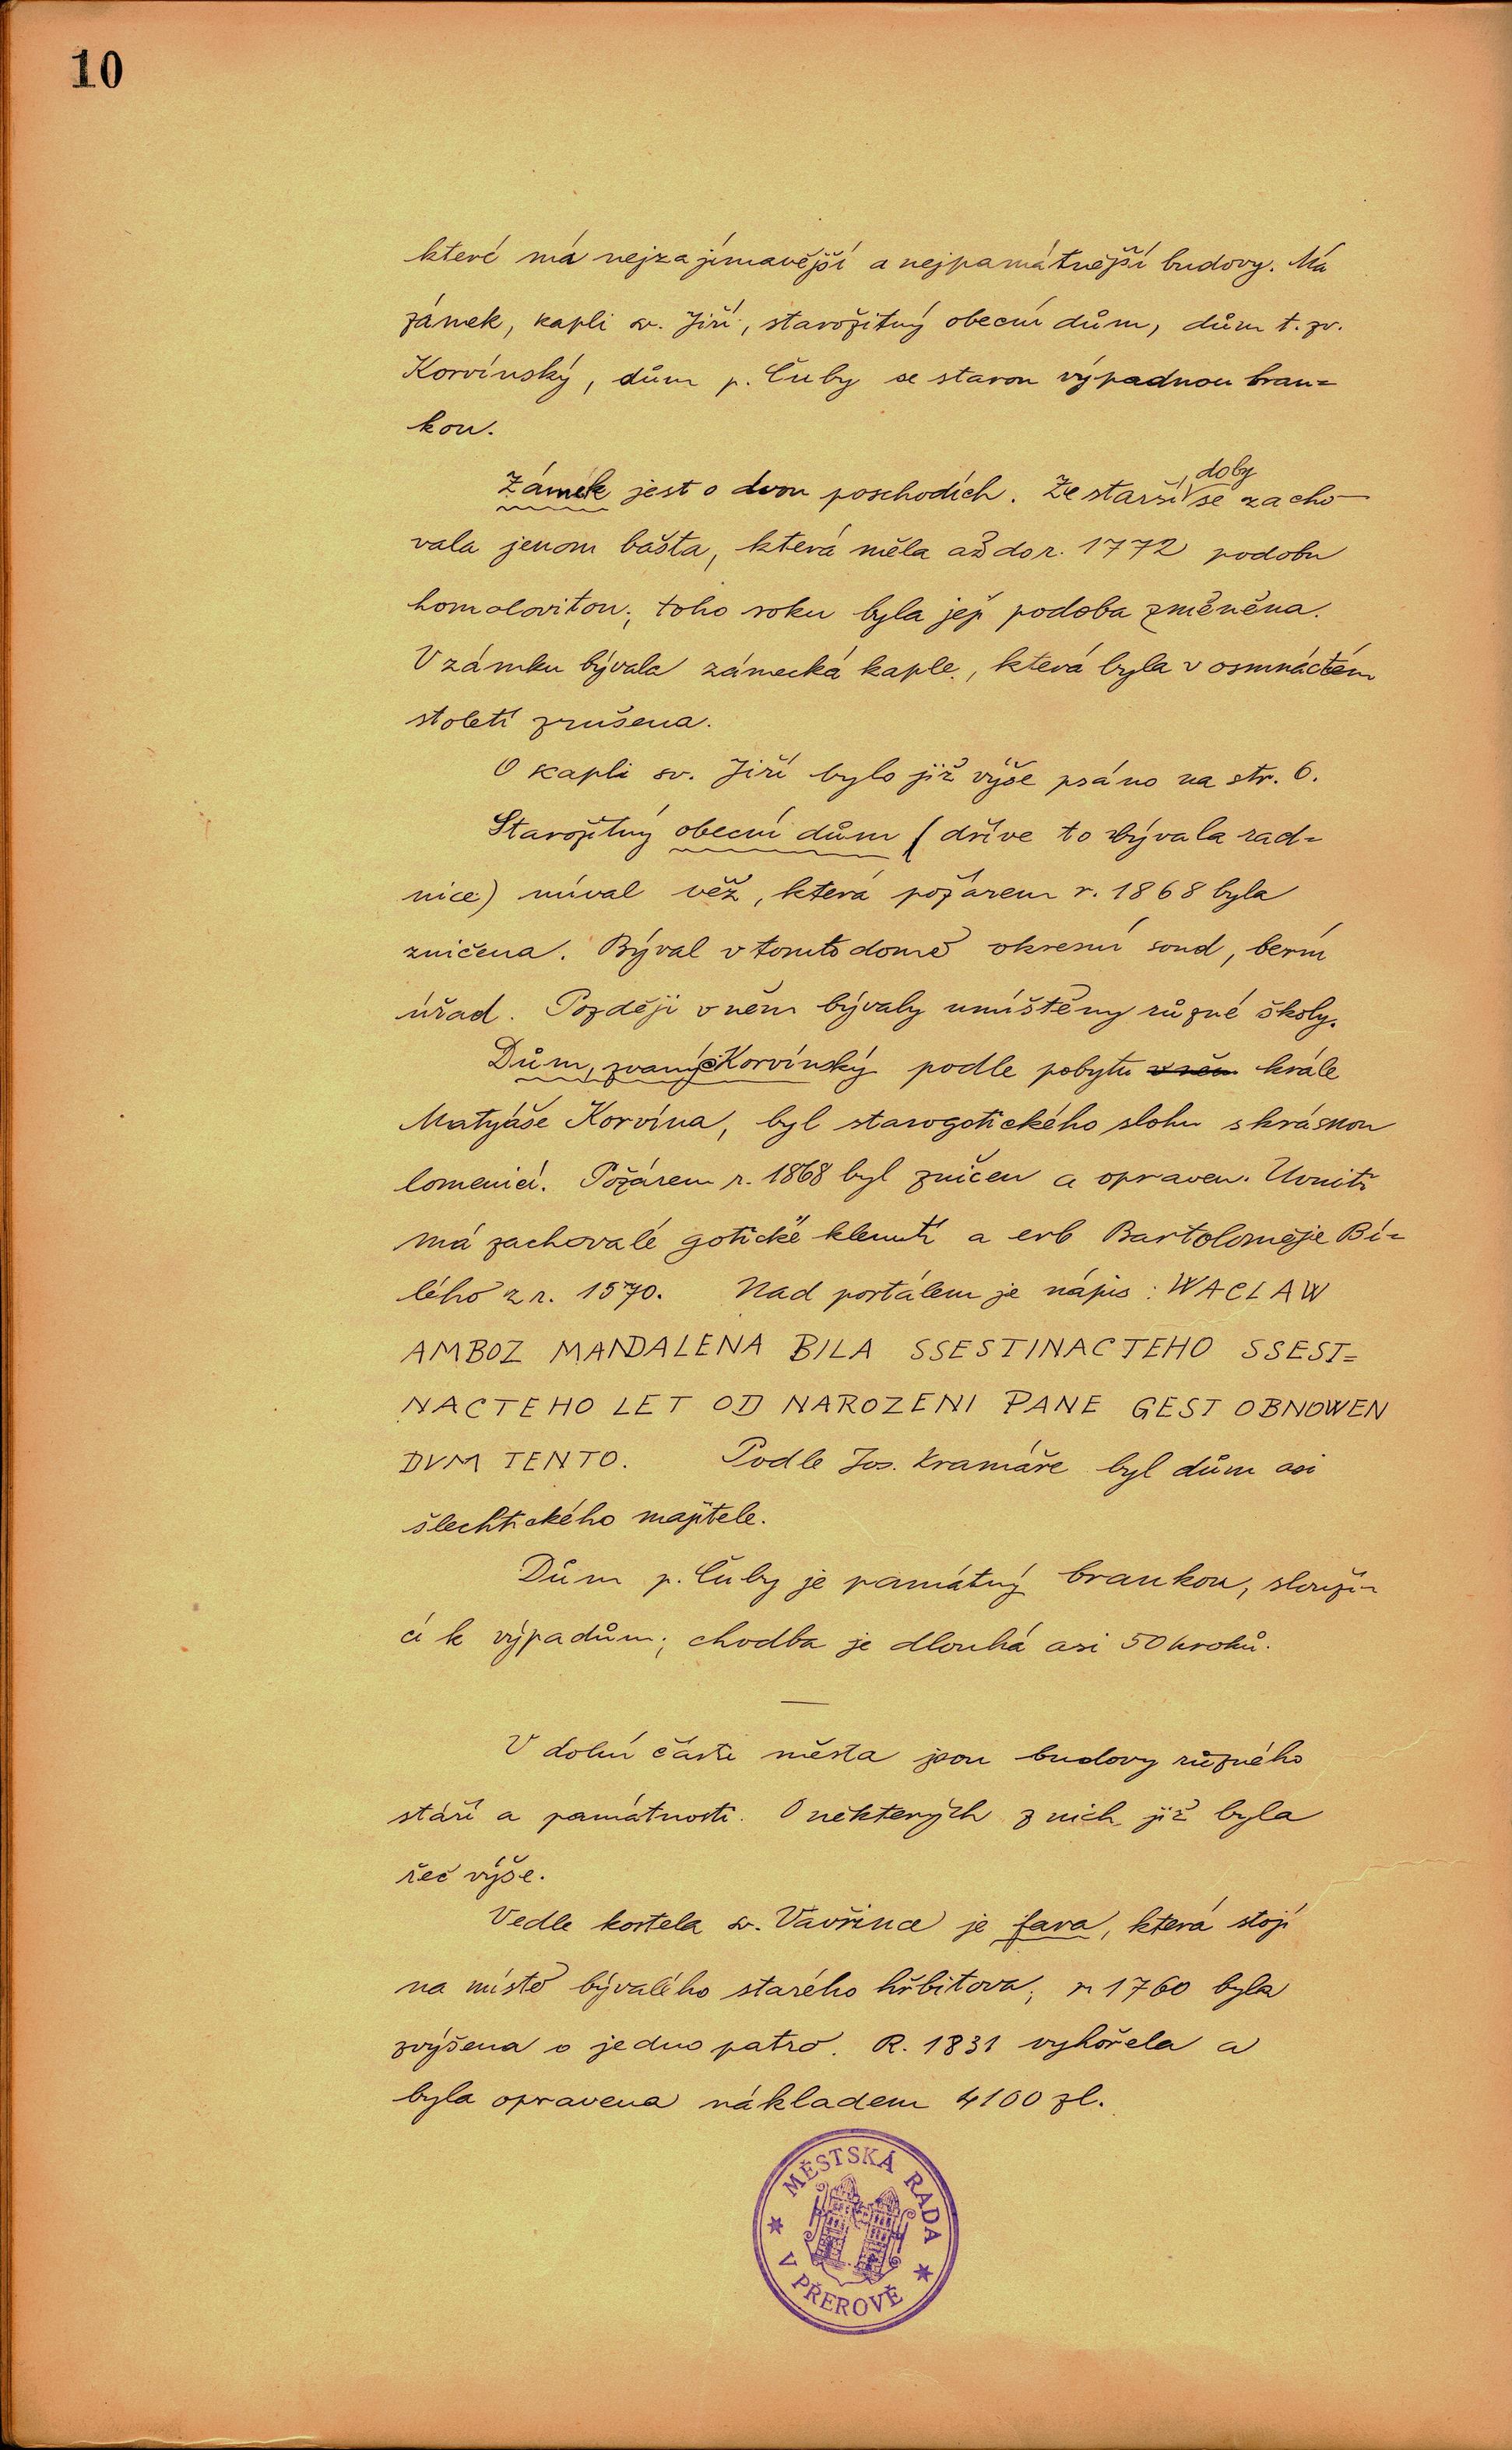 10
které má nejzajímavější a nejpamátnější budovy. Má
zámek, kapli sv. Jiří, starožitný obecní dům, dům t. zv.
Korvínský, dům p. Čuby se starou výpadnou bran=
kou.
Zámek jest o dvou poschodích. Ze starší doby se zacho-
vala jenom bašta, která měla až do r. 1772 podobu
homolovitou; toho roku byla její podoba změněna.
V zámku bývala zámecká kaple, která byla v osmnáctém
století zrušena.
O kapli sv. Jiří bylo již výše psáno na str. 6.
Starožitný obecní dům (dříve to bývala rad=
nice) míval věž, která požárem r. 1868 byla
zničena. Býval v tomto domě okresní soud, berní
úřad. Později v něm bývaly umístěny různé školy.
Dům, zvaný Korvínský podle pobytu v něm krále
Matyáše Korvína, byl starogotického slohu s krásnou
lomenicí. Požárem r. 1868 byl zničen a opraven. Uvnitř
má zachovalé gotické klenutí a erb Bartoloměje Bí=
lého z r. 1570. Nad portálem je nápis: WACLAW
AMBOZ MANDALENA BILA SSESTINACTEHO SSEST=
NACTEHO LET OD NAROZENI PANE GEST OBNOWEN
DVM TENTO. Podle Jos. Kramáře byl dům asi
šlechtického majitele.
Dům p. Čuby je památný brankou, slouží=
cí k výpadům; chodba je dlouhá asi 50 kroků.
—
V dolní části města jsou budovy různého
stáří a památnosti. O některých z nich již byla
řeč výše.
Vedle kostela sv. Vavřince je fara, která stojí
na místě bývalého starého hřbitova; r. 1760 byla
zvýšena o jedno patro. R. 1831 vyhořela a
byla opravena nákladem 4100 zl.
MĚSTSKÁ RADA
V PŘEROVĚ